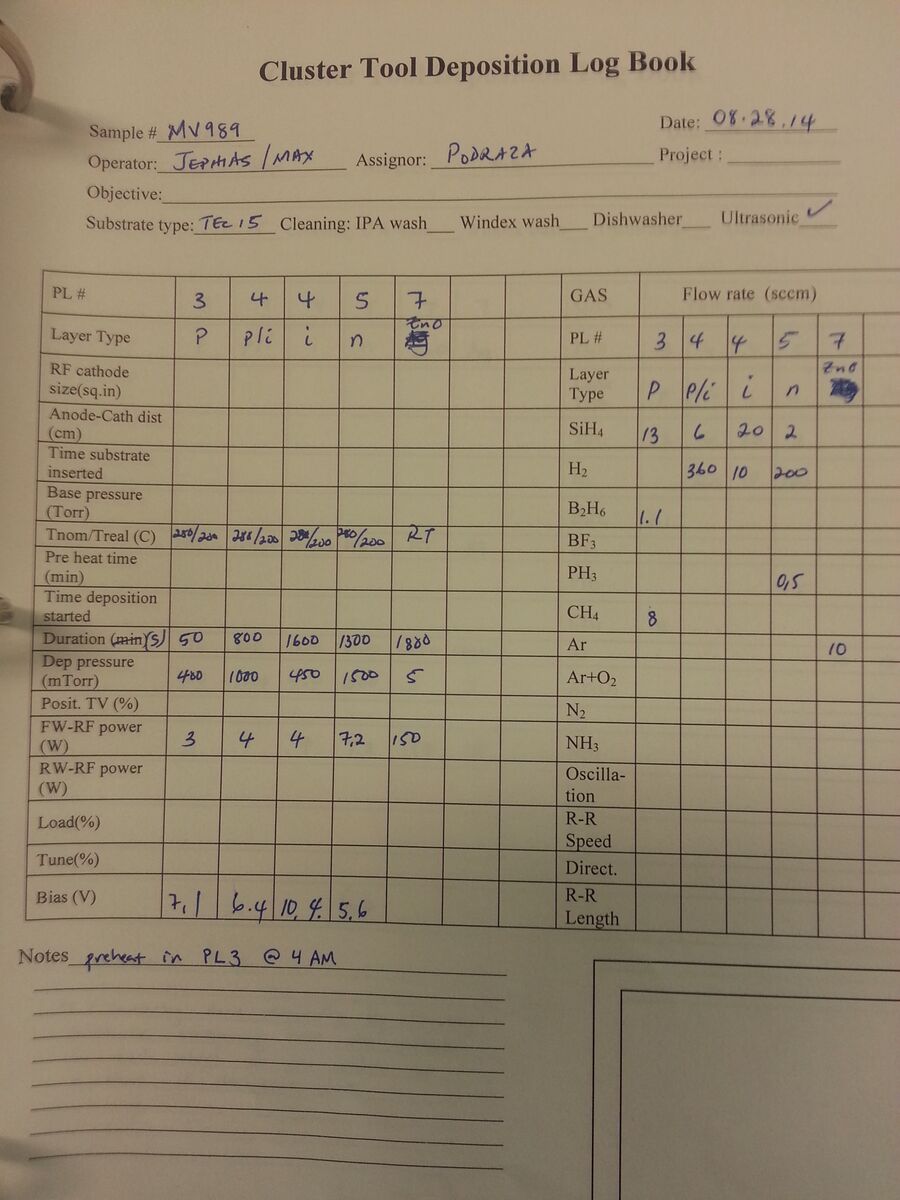 Cluster Tool Deposition Log Book
Sample # MV989 Date: 08.28.14
Operator: JEPHIAS / MAX Assignor: PODRAZA Project :
Objective:
Substrate type: TEC 15 Cleaning: IPA wash Windex wash Dishwasher Ultrasonic ✓
PL # 3 4 4 5 7 GAS Flow rate (sccm)
Layer Type P P/i i n ZnO PL # 3 4 4 5 7
RF cathode size(sq.in) Layer Type P P/i i n ZnO
Anode-Cath dist (cm) SiH₄ 13 6 20 2
Time substrate inserted H₂ 360 10 200
Base pressure (Torr) B₂H₆ 1.1
Tnom/Treal (C) 280/200 280/200 280/200 280/200 RT BF₃
Pre heat time (min) PH₃ 0,5
Time deposition started CH₄ 8
Duration (min)(s) 50 800 1600 1300 1800 Ar 10
Dep pressure (mTorr) 400 1000 450 1500 5 Ar+O₂
Posit. TV (%) N₂
FW-RF power (W) 3 4 4 7.2 150 NH₃
RW-RF power (W) Oscilla-tion
Load(%) R-R Speed
Tune(%) Direct.
Bias (V) 7.1 6.4 10.4 5.6 R-R Length
Notes preheat in PL3 @ 4 AM